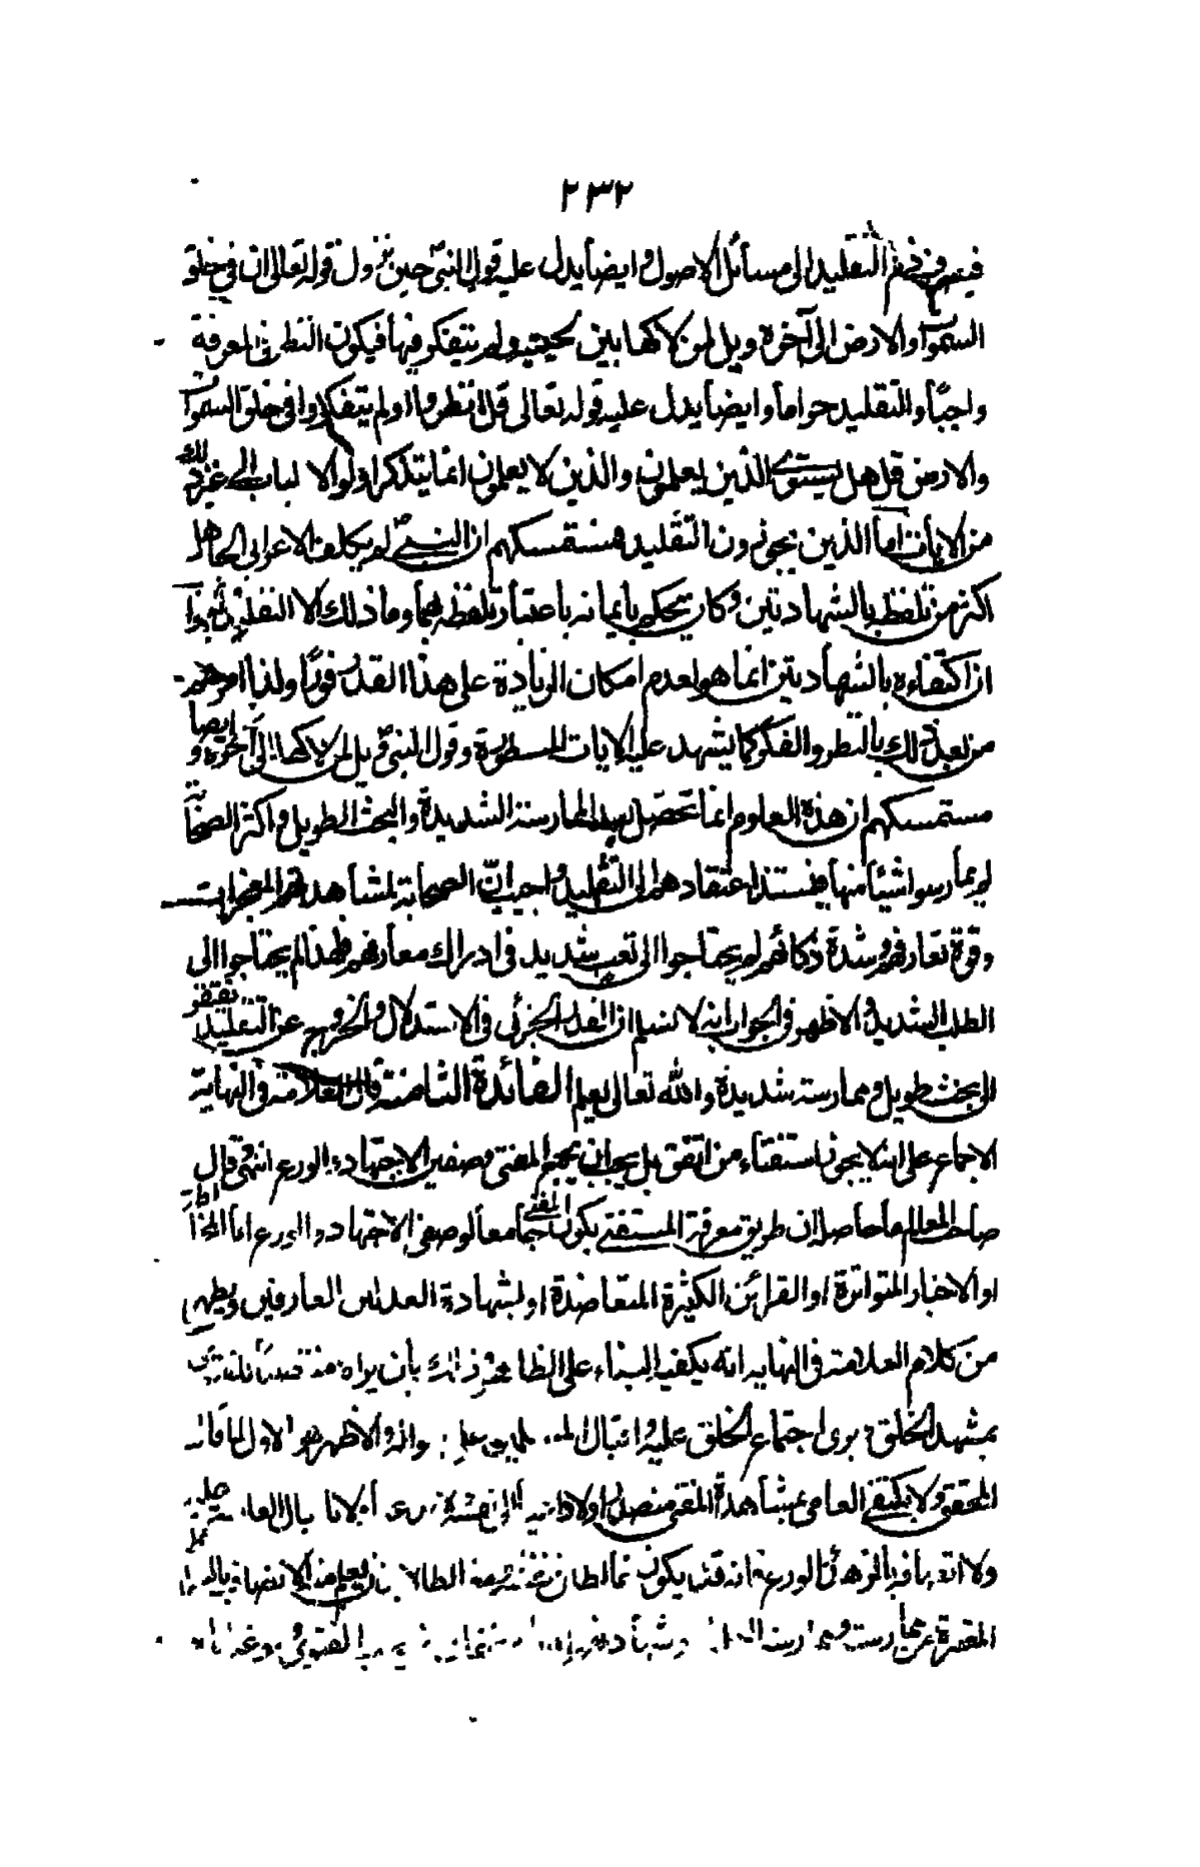 ٢٣٢
فينصرف ذم التقليد الى مسائل الاصول وايضا يدل عليه قول النبي ص حين نزول قوله تعالى ان في خلق
السموات والارض الى آخره ويل لمن لاكها بين لحييه ولم يتفكر فيها فيكون النظر في المعرفة
واجبا والتقليد حراما وايضا يدل عليه قوله تعالى قل انظروا اولم يتفكروا في خلق السموات
والارض قل هل يستوى الذين يعلمون والذين لا يعلمون انما يتذكر اولوا الالباب الى غير ذلك
من الايات اما الذين يجوزون التقليد فمستمسكهم ان النبي ص لم يكلف الاعرابى الجاهل
اكثر من تلفظه بالشهادتين وكان يحكم بايمانه باعتبار تلفظه بهما وما ذلك الا التقليد
ان اكتفاءه بالشهادتين انما هو لعدم امكان الزيادة على هذا القدر فورا ولذا امرهم
من بعد ذلك بالنظر والفكر كما يشهد عليه الايات المسطورة وقول النبي ص ويل لمن لاكها الى آخره وايضا
مستمسكهم ان هذه العلوم انما تحصل بعد الممارسة الشديدة والبحث الطويل واكثر الصحابة
لم يمارسوا شيئا منها فيستند اعتقادهم الى التقليد واجيب ان الصحابة لمشاهدتهم المعجزات
وقوة تعارفهم وشدة ذكائهم لم يحتاجوا الى تعب شديد في ادراك معارفهم فلهذا لم يحتاجوا الى
الطلب الشديد والاظهر في الجواب انه لا نسلم ان القدر الجزئى في الاستدلال والخروج عن التقليد يفتقر
الى بحث طويل وممارسة شديدة والله تعالى يعلم الفائدة الثامنة قال العلامة في النهاية
الاجماع على انه لا يجوز استفتاء من اتفق بل يجب ان يجمع المفتى وصفين الاجتهاد والورع انتهى وقال
صاحب المعالم ما حاصله ان طريق معرفة المستفتى بكون المفتى جامعا لوصفى الاجتهاد والورع اما المخالطة
او الاخبار المتواترة او القرائن الكثيرة المتعاضدة او بشهادة العدلين العارفين ويظهر
من كلام العلامة في النهاية انه يكفيه البناء على الظاهر وذلك بان يراه منتصبا للفتوى
بمشهد الخلق ويرى اجتماع الخلق عليه واقبال المسلمين على سواله والاظهر هو الاول لما قال
المحقق ولا يكتفى العامى بمشاهدة المفتى متصدرا ولا داعيا الى نفسه ولا مدعيا ولا باقبال العامة عليه
ولا اتصافه بالزهد والورع فانه قد يكون غالطا في نفسه او مغالطا بل لا بد ان يعلم منه الاتصاف بالشرائط
المعتبرة من ممارسته وممارسة العلماء وشهادتهم له باستحقاق منصب الفتوى وبلوغه اياه